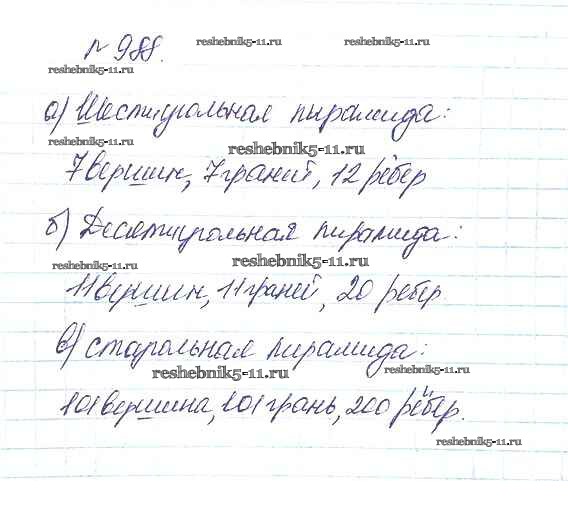 № 988.
reshebnik5-11.ru reshebnik5-11.ru
reshebnik5-11.ru
а) Шестиугольная пирамида:
reshebnik5-11.ru
reshebnik5-11.ru
7 вершин, 7 граней, 12 рёбер
б) Десятиугольная пирамида:
reshebnik5-11.ru
reshebnik5-11.ru
11 вершин, 11 граней, 20 ребер
в) стоугольная пирамида:
reshebnik5-11.ru
reshebnik5-11.ru
101 вершина, 101 грань, 200 рёбер.
reshebnik5-11.ru